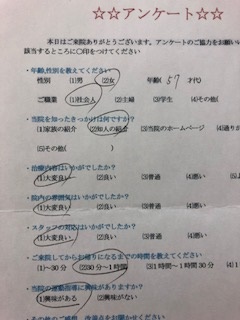 ☆☆アンケート☆☆
本日はご来院ありがとうございます。アンケートのご協力をお願い
該当するところに〇印をつけてください。
・年齢,性別を教えてください
性別 (1)男 (2)女 年齢( 57 才代)
ご職業 (1)社会人 (2)主婦 (3)学生 (4)その他(
・当院を知ったきっかけは何ですか?
(1)家族の紹介 (2)知人の紹介 (3)当院のホームページ (4)通り
(5)その他( )
・治療内容はいかがでしたか?
(1)大変良い (2)良い (3)普通 (4)悪い
・院内の雰囲気はいかがでしたか?
(1)大変良い (2)良い (3)普通 (4)悪い
・スタッフの対応はいかがでしたか?
(1)大変良い (2)良い (3)普通 (4)悪い
・ご来院してからお帰りになるまでの時間を教えてください
(1)~30分 (2)30分~1時間 (3)1時間~1時間30分 (4)1
・当院の運動指導に興味がありますか?
(1)興味がある (2)興味がない
・その他ご感想、改善点をお聞かせください